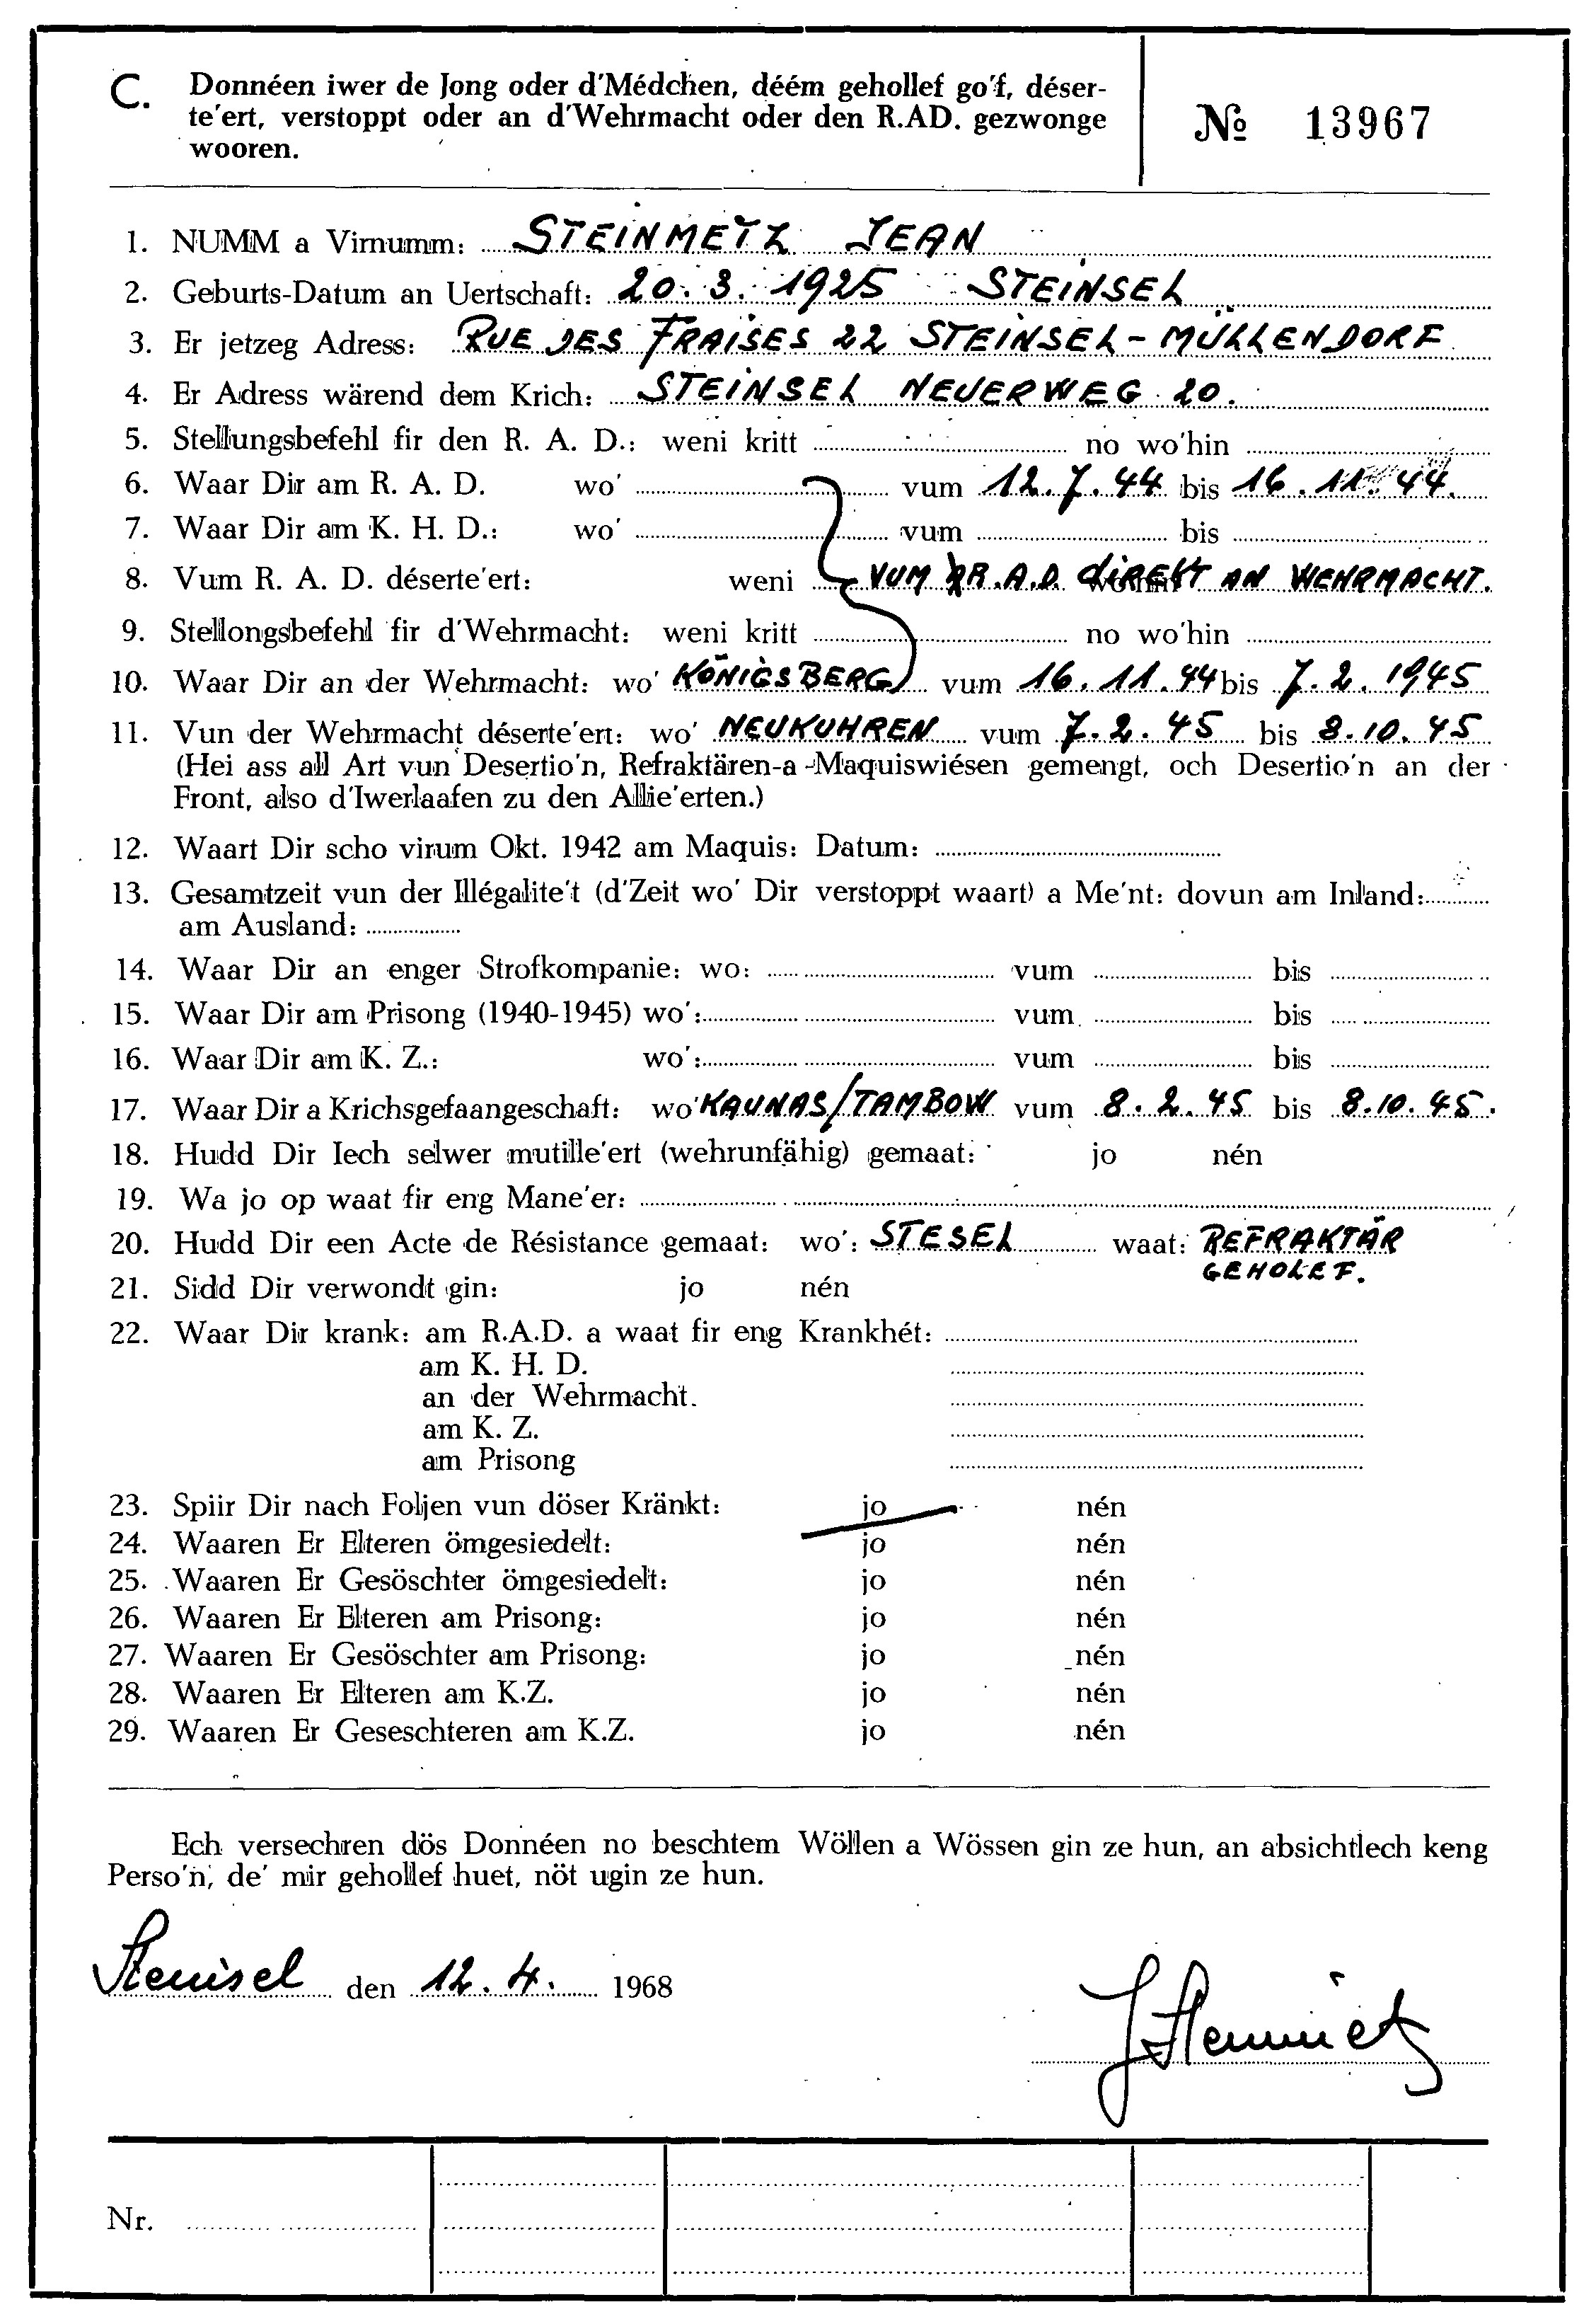 C. Donnéen iwer de Jong oder d'Médchen, déém gehollef go'f, déser-
te'ert, verstoppt oder an d'Wehrmacht oder den R.AD. gezwonge
wooren.
№ 13967
1. NUMM a Virnumm: STEINMETZ JEAN
2. Geburts-Datum an Uertschaft: 20. 3. 1925 STEINSEL
3. Er jetzeg Adress: RUE DES FRAISES 22 STEINSEL - MÜLLENDORF
4. Er Adress wärend dem Krich: STEINSEL NEUERWEG 20.
5. Stellungsbefehl fir den R. A. D.: weni kritt no wo'hin
6. Waar Dir am R. A. D. wo' vum 12.7.44 bis 16.11.44.
7. Waar Dir am K. H. D.: wo' vum bis
8. Vum R. A. D. déserte'ert: weni VUM R.A.D. DIREKT AN WEHRMACHT.
9. Stellongsbefehl fir d'Wehrmacht: weni kritt no wo'hin
10. Waar Dir an der Wehrmacht: wo' KÖNIGSBERG vum 16.11.44 bis 7.2.1945
11. Vun der Wehrmacht déserte'ert: wo' NEUKUHREN vum 7.2.45 bis 8.10.45
(Hei ass all Art vun Desertio'n, Refraktären-a-Maquiswiésen gemengt, och Desertio'n an der
Front, also d'Iwerlaafen zu den Allie'erten.)
12. Waart Dir scho virum Okt. 1942 am Maquis: Datum:
13. Gesamtzeit vun der Illégalite't (d'Zeit wo' Dir verstoppt waart) a Me'nt: dovun am Inland:
am Ausland:
14. Waar Dir an enger Strofkompanie: wo: vum bis
15. Waar Dir am Prisong (1940-1945) wo': vum bis
16. Waar Dir am K. Z.: wo': vum bis
17. Waar Dir a Krichsgefaangeschaft: wo' KAUNAS/TAMBOW vum 8.2.45 bis 8.10.45.
18. Hudd Dir Iech selwer mutille'ert (wehrunfähig) gemaat: jo nén
19. Wa jo op waat fir eng Mane'er:
20. Hudd Dir een Acte de Résistance gemaat: wo': STESEL waat: REFRAKTÄR
GEHOLEF.
21. Sidd Dir verwondt gin: jo nén
22. Waar Dir krank: am R.A.D. a waat fir eng Krankhét:
am K. H. D.
an der Wehrmacht.
am K. Z.
am Prisong
23. Spiir Dir nach Foljen vun döser Kränkt: jo nén
24. Waaren Er Elteren ömgesiedelt: jo nén
25. Waaren Er Gesöschter ömgesiedelt: jo nén
26. Waaren Er Elteren am Prisong: jo nén
27. Waaren Er Gesöschter am Prisong: jo nén
28. Waaren Er Elteren am K.Z. jo nén
29. Waaren Er Geseschteren am K.Z. jo nén
Ech versechren dös Donnéen no beschtem Wöllen a Wössen gin ze hun, an absichtlech keng
Perso'n, de' mir gehollef huet, nöt ugin ze hun.
Steinsel den 12. 4. 1968
J Steinmetz
Nr.